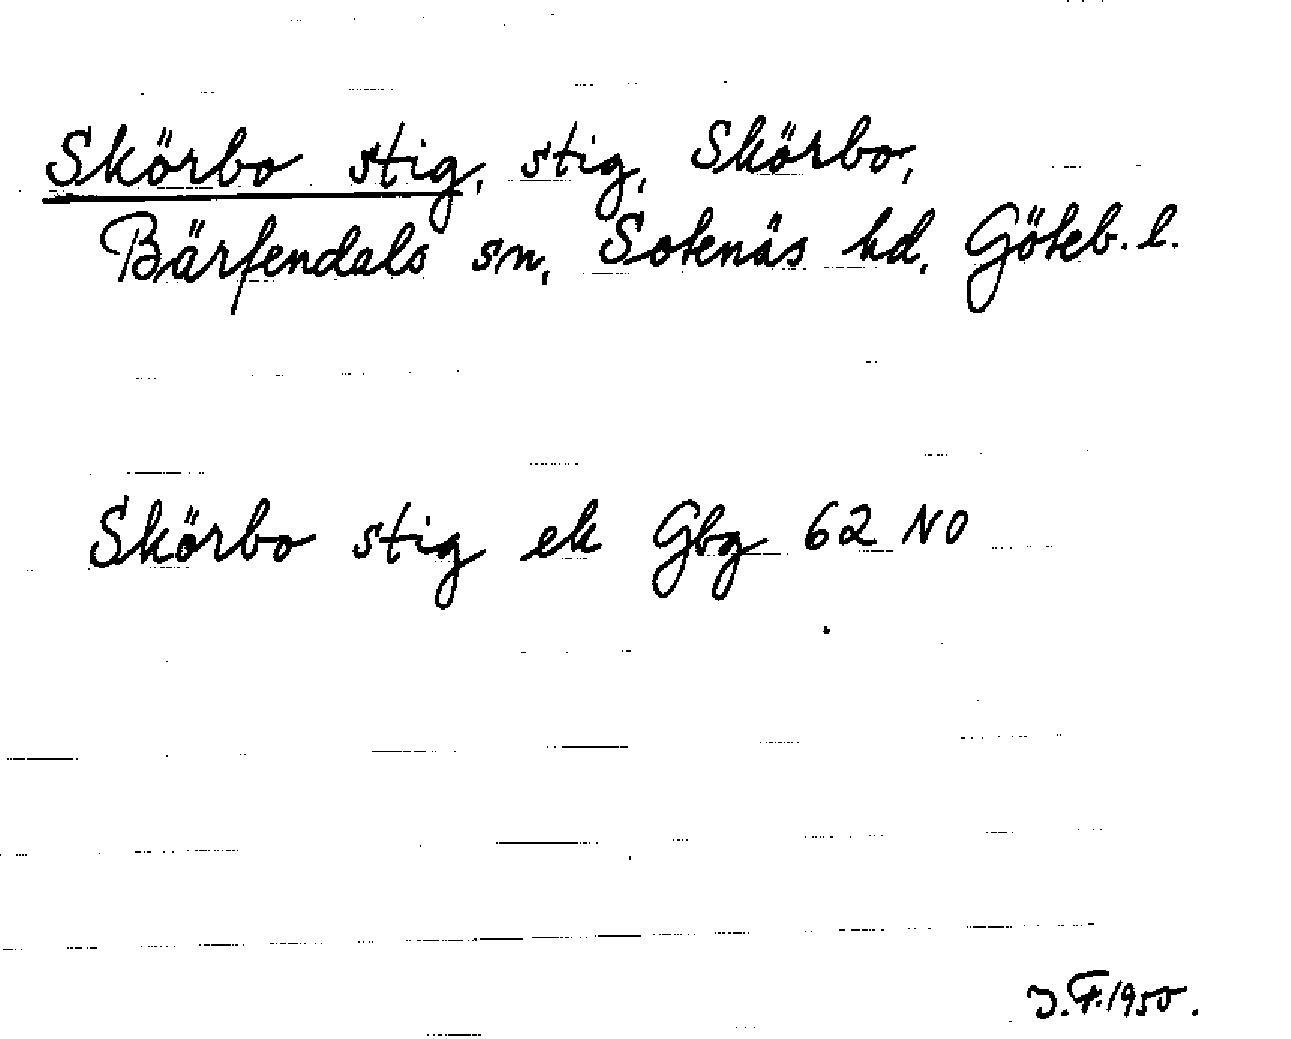 Skörbo stig, stig, Skörbo,
Bärfendals sn, Sotenäs hd, Göteb. l.
Skörbo stig ek Gbg 62 NO
J.F. 1950.